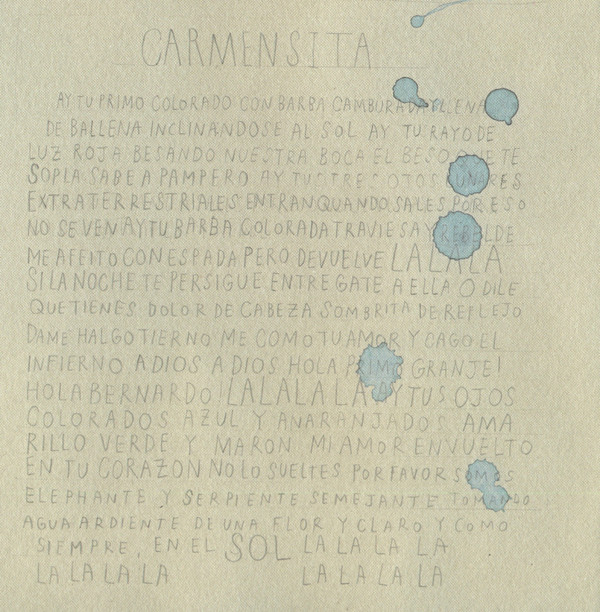 CARMENSITA
AY TU PRIMO COLORADO CON BARBA CAMBURADA LLENA
DE BALLENA INCLINANDOSE AL SOL AY TU RAYO DE
LUZ ROJA BESANDO NUESTRA BOCA EL BESO QUE TE
SOPLA SABE A PAMPERO AY TUS TRES OJOS LUNARES
EXTRATERRESTRIALES ENTRAN QUANDO SALES POR ESO
NO SE VEN AY TU BARBA COLORADA TRAVIESA Y REBELDE
ME AFEITO CON ESPADA PERO DEVUELVE LA LA LA
SI LA NOCHE TE PERSIGUE ENTREGATE A ELLA O DILE
QUE TIENES DOLOR DE CABEZA SOMBRITA DE REFLEJO
DAME HALGO TIERNO ME COMO TU AMOR Y CAGO EL
INFIERNO ADIOS ADIOS HOLA PRIMO GRANJE!
HOLA BERNARDO! LA LA LA LA AY TUS OJOS
COLORADOS AZUL Y ANARANJADOS AMA
RILLO VERDE Y MARON MI AMOR ENVUELTO
EN TU CORAZON NO LO SUELTES POR FAVOR SOMOS
ELEPHANTE Y SERPIENTE SEMEJANTE TOMANDO
AGUA ARDIENTE DE UNA FLOR Y CLARO Y COMO
SIEMPRE, EN EL SOL LA LA LA LA
LA LA LA LA LA LA LA LA